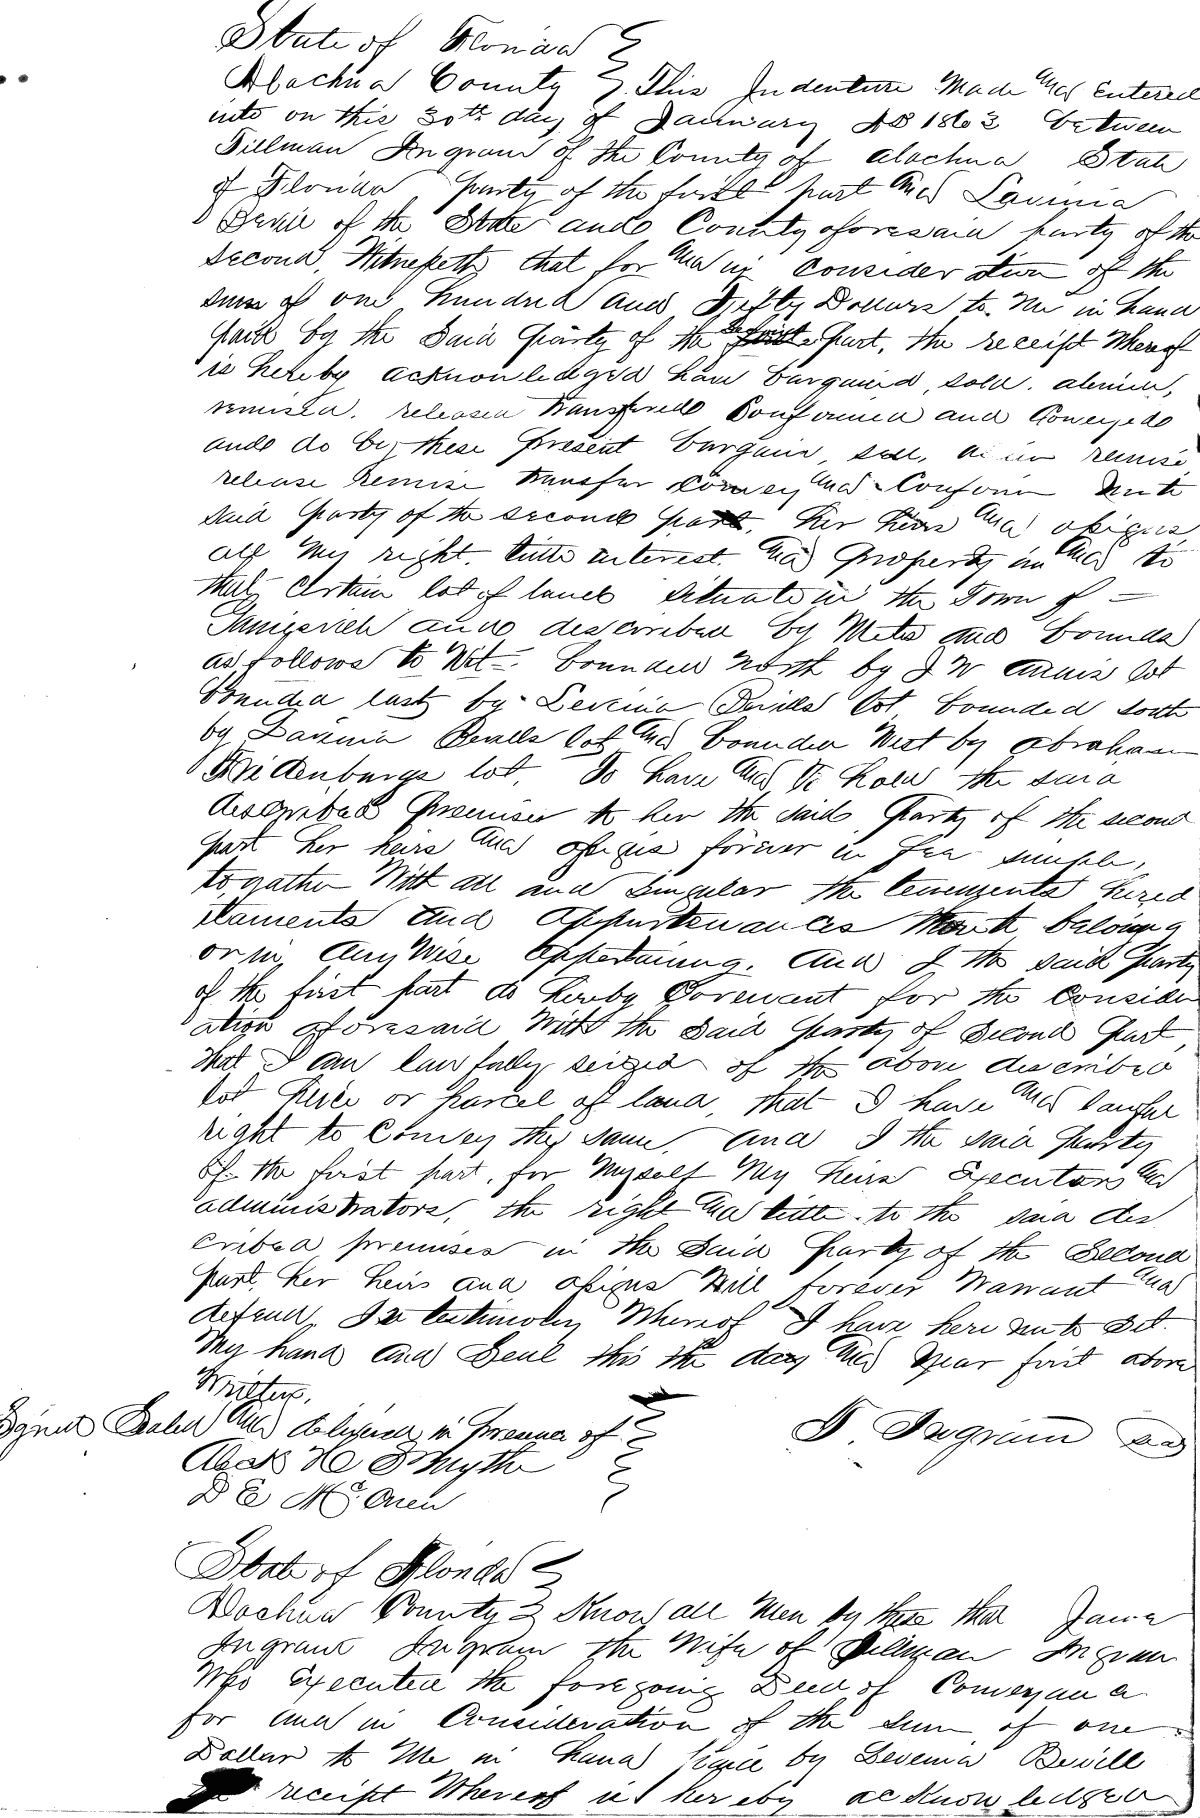 State of Florida
Alachua County This Indenture Made and entered
into on this 30th day of January AD 1863 between
Tillman Ingram of the County of Alachua State
of Florida party of the first part and Lavinia
Bevill of the State and County aforesaid party of the
second, Witnesseth, that for and in consideration of the
sum of one hundred and Fifty Dollars to me in hand
paid by the Said party of the Second part, the receipt Whereof
is hereby acknowledged have bargained, sold, aliened,
remised, released transfered Confirmed and Conveyed
and do by these present bargain, sell, alien remise
release remise transfer convey and Confirm unto
said party of the second part, her heirs and assigns,
all My right, title interest, and property in and to
that certain lot of land situate in the Town of —
and described by Mets and bounds
as follows to Wit = bounded North by J W lot
bounded East by Levinia Bevills lot, bounded south
by Lavinia Bevells lot and bounded West by Abraham
Fridenburgs lot, To have and To hold the said
described premises to her the said party of the second
part her heirs and assigns forever in fee simple,
togather With all and singular the tenements hered
itaments and appurtenances thereto belonging
or in any Wise appertaining. And I the said party
of the first part do hereby Covenant for the consider
ation aforesaid With the Said party of Second Part,
that I am lawfully seized of the above described
lot Peice or parcel of land, that I have and lawful
right to Convey the same, and I the said party
of the first part, for Myself My heirs Executors and
administrators, the right and title to the said des
cribed premises in the Said party of the Second
part, her heirs and assigns Will forever Warrant and
defend, In testimony Whereof I have here unto Set
My hand and Seal this the day and year first above
Written.
Signed Sealed and delivered in presence of
T. Ingram Seal
H Smythe
D E McOnen
State of Florida
Alachua County Know all Men by these that Jane
Ingram Ingram the Wife of Tillman Ingram
Who Executed the foregoing Deed of Conveyance
for and in Consideration of the sum of one
Dollar to Me in hand paid by Levenia Bevill
receipt Whereof is hereby acknowledged